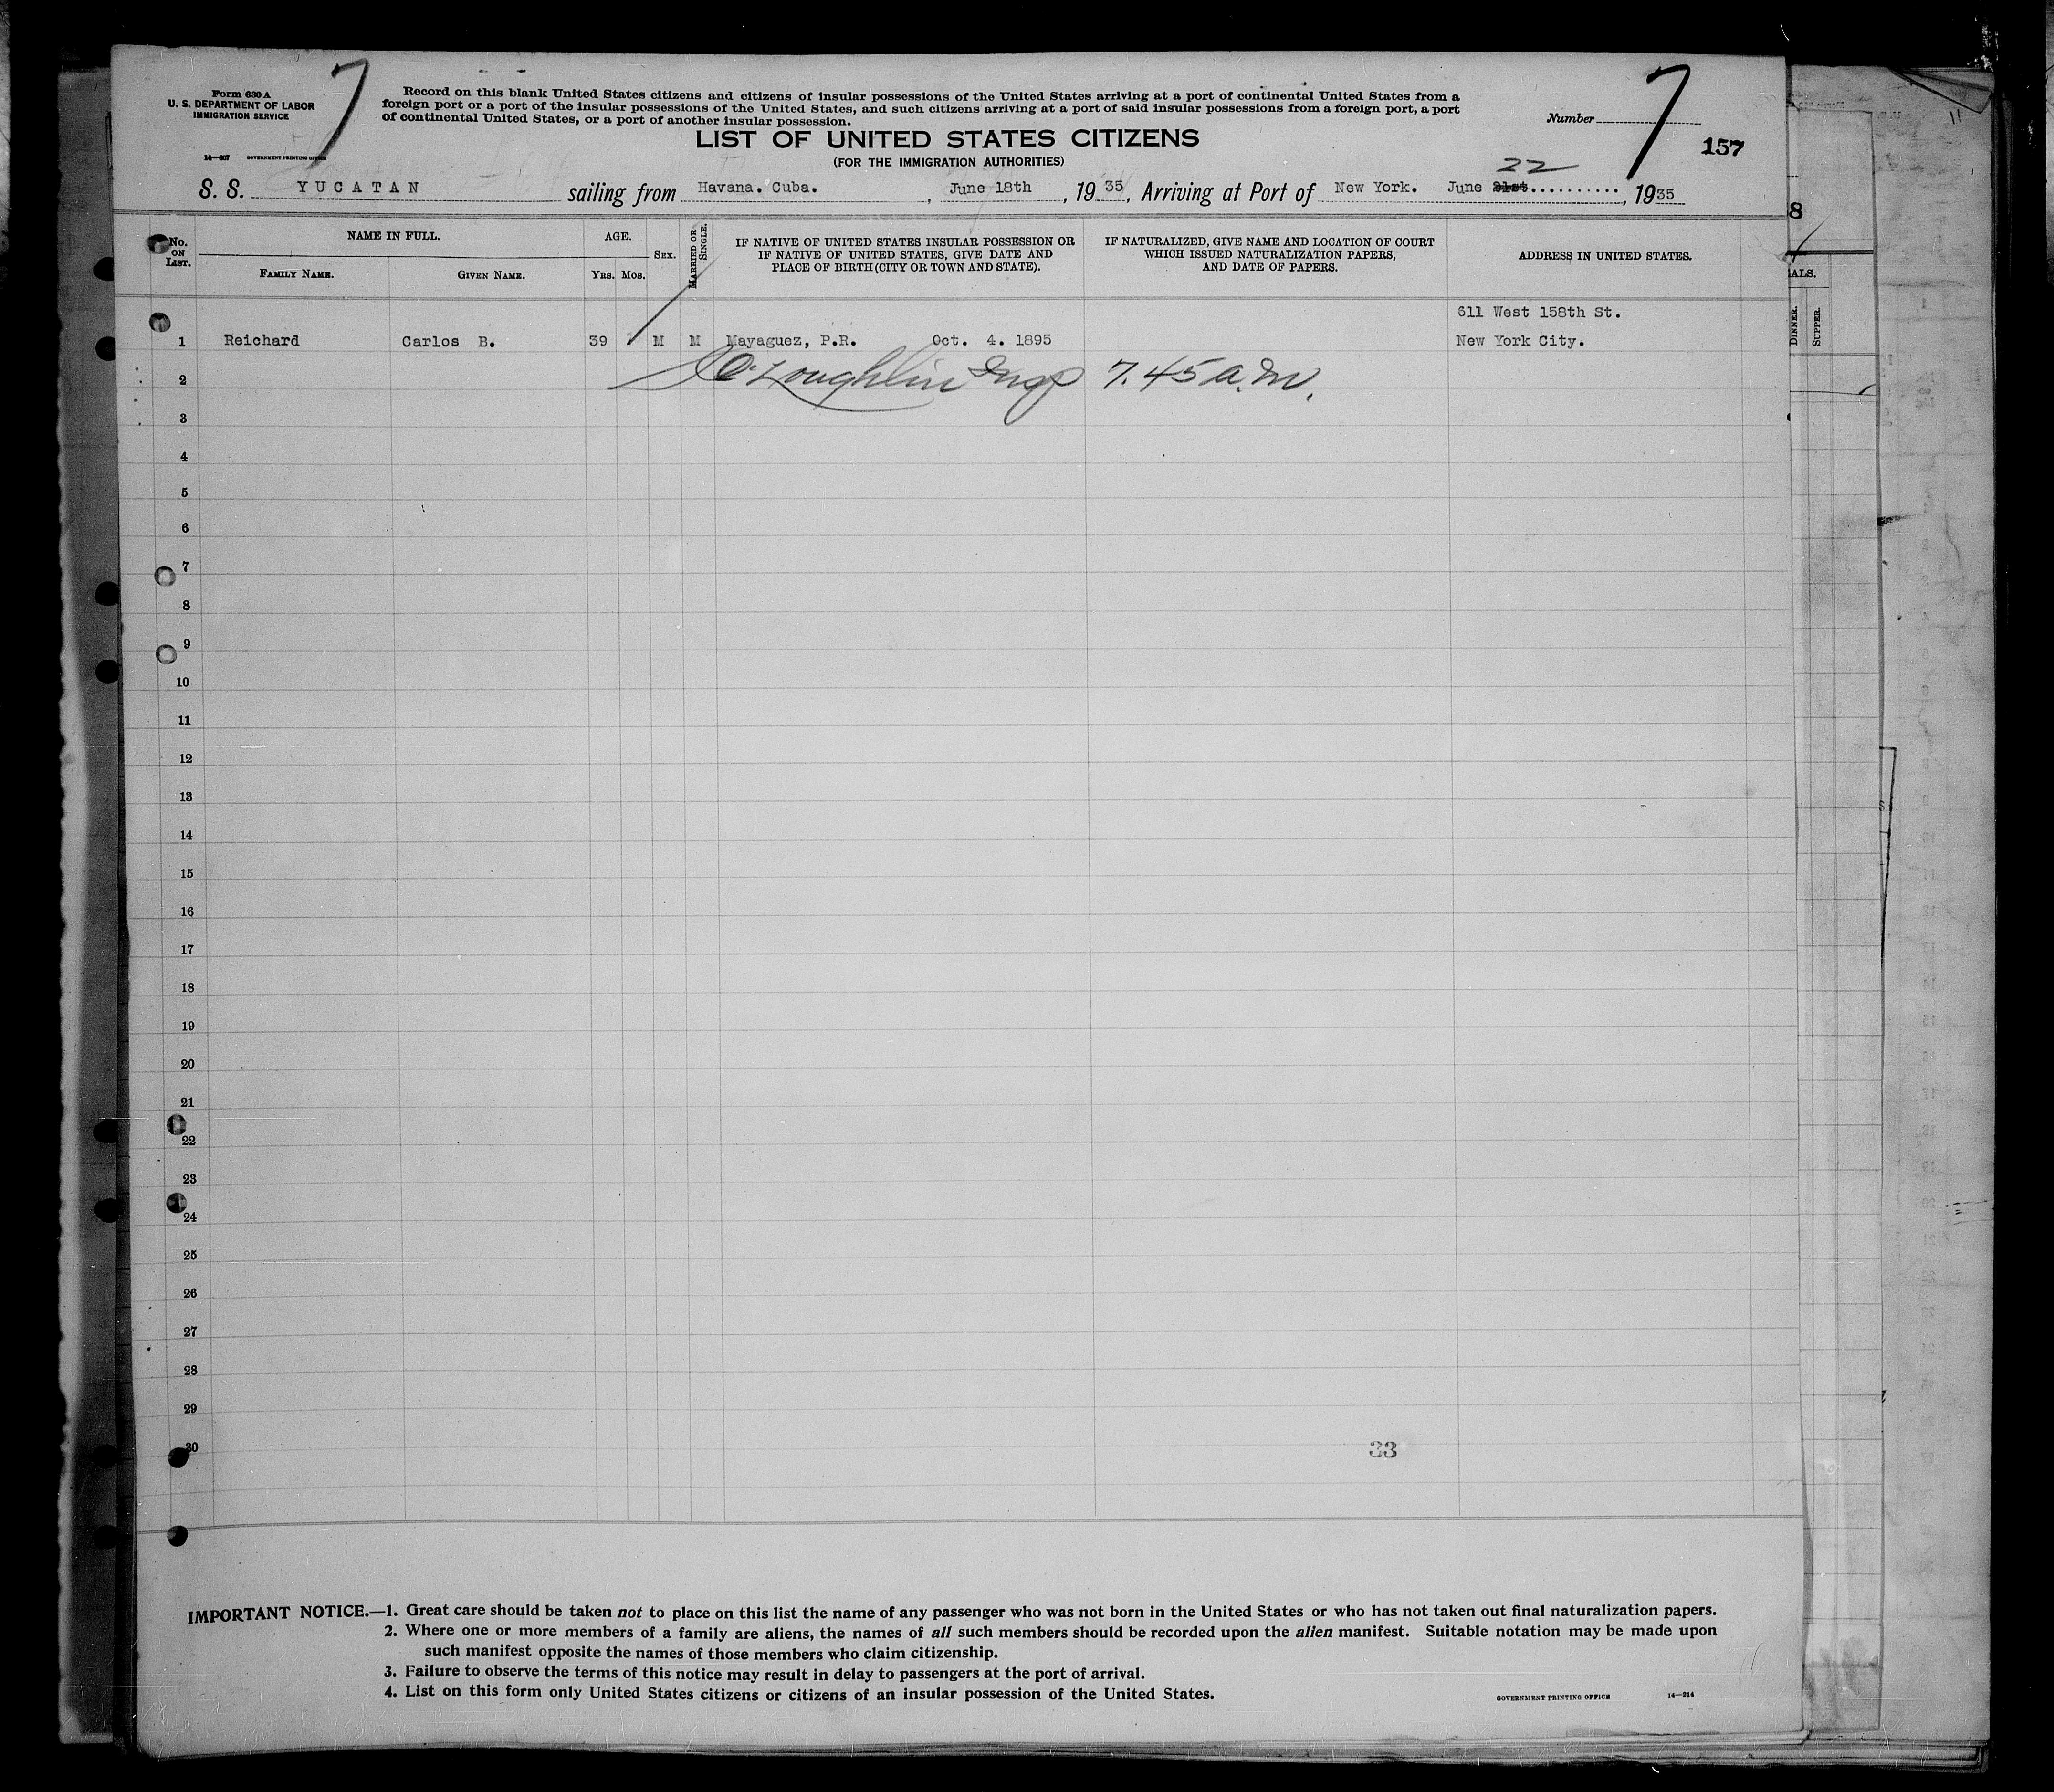 Form 630 A
U. S. DEPARTMENT OF LABOR
IMMIGRATION SERVICE
14—607 GOVERNMENT PRINTING OFFICE
7
Record on this blank United States citizens and citizens of insular possessions of the United States arriving at a port of continental United States from a
foreign port or a port of the insular possessions of the United States, and such citizens arriving at a port of said insular possessions from a foreign port, a port
of continental United States, or a port of another insular possession.
Number 7
157
LIST OF UNITED STATES CITIZENS
(FOR THE IMMIGRATION AUTHORITIES)
22
S. S. YUCATAN sailing from Havana. Cuba. , June 18th , 19 35, Arriving at Port of New York. June 21st.......... , 1935
No. ON LIST.
NAME IN FULL.
FAMILY NAME.
GIVEN NAME.
AGE.
YRS. MOS.
SEX.
MARRIED OR SINGLE.
IF NATIVE OF UNITED STATES INSULAR POSSESSION OR
IF NATIVE OF UNITED STATES, GIVE DATE AND
PLACE OF BIRTH (CITY OR TOWN AND STATE).
IF NATURALIZED, GIVE NAME AND LOCATION OF COURT
WHICH ISSUED NATURALIZATION PAPERS,
AND DATE OF PAPERS.
ADDRESS IN UNITED STATES.
611 West 158th St.
1 Reichard Carlos B. 39 M M Mayaguez, P.R. Oct. 4. 1895 New York City.
2 O'Loughlin Insp 7.45 a.m.
3
4
5
6
7
8
9
10
11
12
13
14
15
16
17
18
19
20
21
22
23
24
25
26
27
28
29
30
33
IMPORTANT NOTICE.—1. Great care should be taken not to place on this list the name of any passenger who was not born in the United States or who has not taken out final naturalization papers.
2. Where one or more members of a family are aliens, the names of all such members should be recorded upon the alien manifest. Suitable notation may be made upon
such manifest opposite the names of those members who claim citizenship.
3. Failure to observe the terms of this notice may result in delay to passengers at the port of arrival.
4. List on this form only United States citizens or citizens of an insular possession of the United States.
GOVERNMENT PRINTING OFFICE 14—214
8
IALS.
DINNER.
SUPPER.